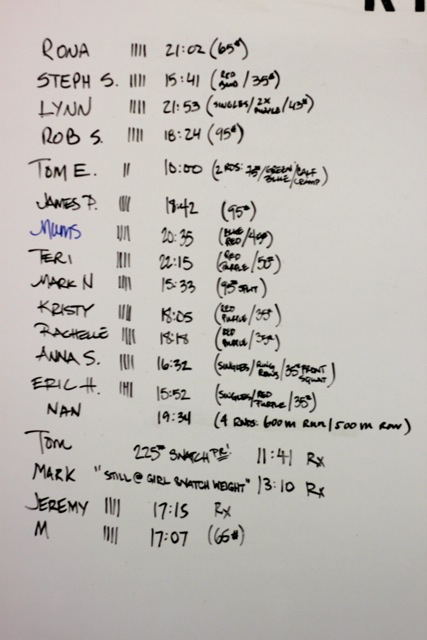 RONA |||| 21:02 (65#)
STEPH S. |||| 15:41 (RED BAND/35#)
LYNN |||| 21:53 (SINGLES/2X PURPLE/43#)
ROB S. |||| 18:24 (95#)
TOM E. || 10:00 (2 RDS: 75#/GREEN BLUE/CALF CRAMP)
JAMES P. |||| 18:42 (95#)
Mums |||| 20:35 (BLUE RED/40#)
TERI |||| 22:15 (RED PURPLE/50#)
MARK N |||| 15:33 (95# SPLIT)
KRISTY |||| 18:05 (RED PURPLE/35#)
RACHELLE |||| 18:18 (RED PURPLE/35#)
ANNA S. |||| 16:32 (SINGLES/RING ROWS/35# FRONT SQUAT)
ERIC H. |||| 15:52 (SINGLES/RED PURPLE/35#)
NAN 19:34 (4 RNDS: 600m RUN/500m ROW)
Tom 225# SNATCH PR! 11:41 Rx
MARK "STILL @ GIRL SNATCH WEIGHT" 13:10 Rx
JEREMY |||| 17:15 Rx
M |||| 17:07 (65#)